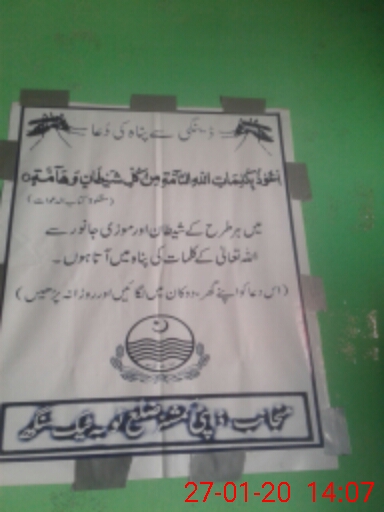 ڈینگی سے پناہ کی دُعا
اَعُوْذُ بِکَلِمَاتِ اللہِ التَّآمَّۃِ مِنْ کُلِّ شَیْطَانٍ وَّھَآمَّۃٍ
(مشکوٰۃ کتاب الدعوات)
میں ہر طرح کے شیطان اور موذی جانور سے
اللہ تعالیٰ کے کلمات کی پناہ میں آتا ہوں۔
(اس دعا کو اپنے گھر، دوکان میں لگائیں اور روزانہ پڑھیں)
منجانب: ڈپٹی کمشنر ضلع ٹوبہ ٹیک سنگھ
27-01-20 14:07